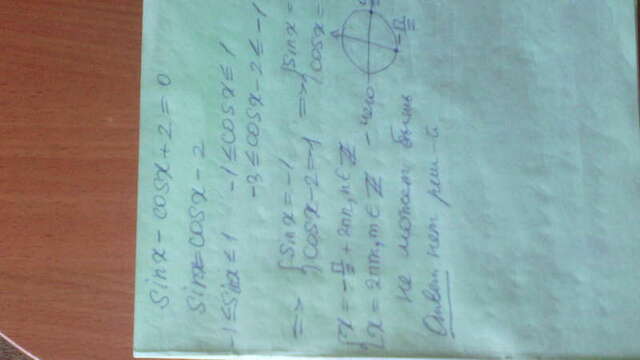 sinx - cosx + 2 = 0
sinx = cosx - 2
-1 ≤ sinx ≤ 1   -1 ≤ cosx ≤ 1
-3 ≤ cosx - 2 ≤ -1
=> { sinx = -1   => { sinx =
{ cosx - 2 = -1   { cosx =
{ x = -π/2 + 2πn, n ∈ Z
{ x = 2πm, m ∈ Z - чего
-π/2
не может быть
Ответ: нет реш-й